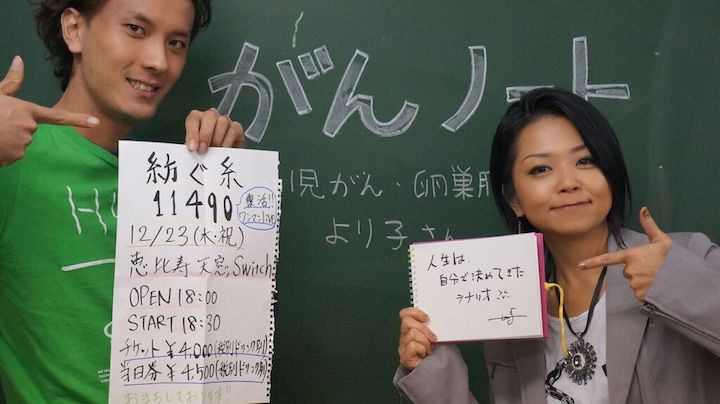 がんノート
児がん・卵巣腫
より子さん
紡ぐ糸
11490
復活!!
ワンマンlive
12/23(水・祝)
恵比寿 天窓.switch
OPEN 18:00
START 18:30
チケット ¥4,000(税別ドリンク別)
当日券 ¥4,500(税別ドリンク別)
おまちしております!!
人生は
自分で決めてきた
シナリオ